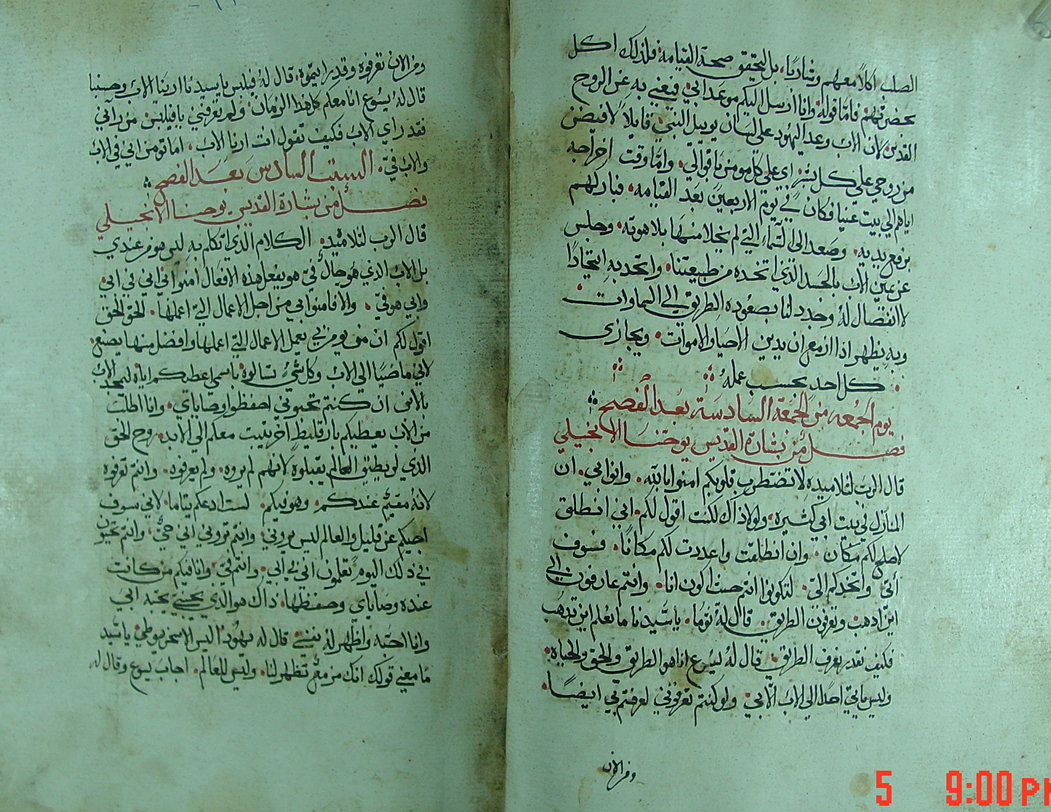 الصلب اكلا معهم وشاربا. بل ليحقق صحة القيامة فلذلك اكل
بحضرتهم فاما قوله وانا ارسل اليكم موعد ابي فيعني به عن الروح
القدس لان الاب وعد اليهود على لسان يوييل النبي قايلا لافيض
من روحي على كل بشر اي على كل مومن باقوالي. واما وقت اخراجه
اياهم الى بيت عنيا فكان في يوم الاربعين بعد القيامه. فباركهم
برفع يديه. وصعد الى السما التي لم يخلا منها بلاهوته. وجلس
عن يمين الاب بالجسد الذي اتخذه من طبيعتنا. واتحد به اتحادا
لا انفصال له وجدد لنا بصعوده الطريق الى السماوات.
وبه يظهر اذا ازمع ان يدين الاحيا والاموات. ويجازى
كل احد بحسب عمله
يوم الجمعه من الجمعة السادسة بعد الفصح
فصل من بشارة القديس يوحنا الانجيلي
قال الرب لتلاميذه لا تضطرب قلوبكم امنوا بالله. وامنوا بي. ان
المنازل في بيت ابي كثيرة. ولولا ذاك لكنت اقول لكم. اني انطلق
لاصلح لكم مكان. وان انطلقت واعددت لكم مكانا. فسوف
اتي واخذكم الي. لتكونوا انتم حيث اكون انا. وانتم عارفون الى
اين اذهب وتعرفون الطريق. قال له توما. يا سيد نا ما نعلم اين تذهب
فكيف نقدر نعرف الطريق. قال له يسوع انا هو الطريق والحق والحياه.
وليس ياتي احد الى الاب الا بي. ولو كنتم تعرفوني لعرفتم ابي ايضا.
ومن الان
ومن الان تعرفوه وقد رايتموه. قال له فيلبس يا سيدنا ارينا الاب وحسبنا
قال له يسوع انا معكم كل هذا الزمان ولم تعرفني يا فيلبس من رآني
فقد راي الاب فكيف تقول انت ارنا الاب. اما تومن اني في الاب
والاب في. السبت السادس بعد الفصح
فصل من بشارة القديس يوحنا الانجيلي
قال الرب لتلاميذه. الكلام الذي اتكلم به ليس هو من عندي
بل الاب الذي هو حال في هو يفعل هذه الافعال امنوا اني في ابي
وابي هو في. والا فامنوا بي من اجل الاعمال التي اعملها. الحق الحق
اقول لكم ان من يومن بي يعمل الاعمال التي اعملها وافضل منها يصنع
لاني ماضيا الى الاب وكل شي تسالوه باسمي اعطيكم اياه ليتمجد الاب
بالابن ان كنتم تحبوني احفظوا وصاياي. وانا اطلب
من الاب يعطيكم بارقليط اخر يثبت معكم الى الابد. روح الحق
الذي لم يطيق العالم يقبلوه لانهم لم يروه. ولم يعرفوه. وانتم تعرفوه
لانه مقيم عندكم. وهو فيكم. لست ادعكم يتاما. لاني سوف
اجيكم عن قليل والعالم ليس يروني. وانتم تروني اني حي. وانتم تحيون
في ذلك اليوم تعلمون اني في ابي. وانتم في. وانا فيكم من كانت
عنده وصاياي وحفظها. ذاك هو الذي يحبني يحبه ابي
وانا احبه واظهر له نفسي. قال له يهودا ليس الاسخريوطي يا سيد
ما معنى قولك انك مزمع تظهر لنا. وليس للعالم. اجاب يسوع وقال له
5 9:00 PM